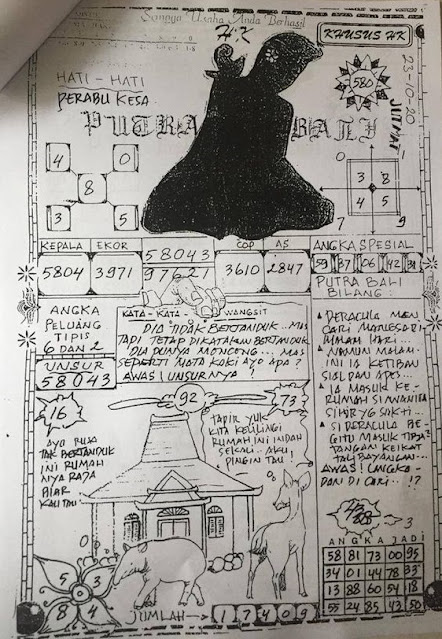 Semoga Usaha Anda Berhasil
HK
KHUSUS HK
23-10-20
JUM'AT
580
HATI - HATI
PERABU KESA
PUTRA BALI
4 0
8
3 5
1
3 8
4 5
7 9
KEPALA EKOR 58043 COP AS ANGKA SPESIAL
5804 3971 97621 3610 2847 59 37 06 42 31
ANGKA
PELUANG
TIPIS
6 DAN 2
UNSUR
58043
KATA - KATA - WANGSIT
DIA TIDAK BERTANDUK... MAS
TAPI TETAP DIKATAKAN BERTANDUK
DIA PUNYA MONCENG... MAS
SEPERTI MATA KAKI AYO APA?
AWAS! UNSURNYA!
PUTRA BALI
BILANG:
DERACULA MEN
CARI MANGSA DI
MALAM HARI...
NAMUN MALAM
INI IA KETIBAN
SIAL DAN APO.
IA MASUK KE
RUMAH SI WANITA
SIHIR 76 SAKTI...
SI DERACULA BE
GITU MASUK TIBA
TANGAN KEIKAT
TALI BAYANGAN...
AWAS! UNGKA-
DAN DI CARI...!?
16
92
73
AYO PUJA
TAK BERTANDUK
INI RUMAH
NYA RAJA
BIAR
KALI TAU
TAPIR YUK
KITA KELILINGI
RUMAH INI INDAH
SEKALI.. AKU
PINGIN TAU!
3
88
ANGKA JADI
58 81 73 00 95
34 01 44 78 33
13 88 60 54 18
55 24 85 43 50
5 3
0
8 4
JUMLAH 17409